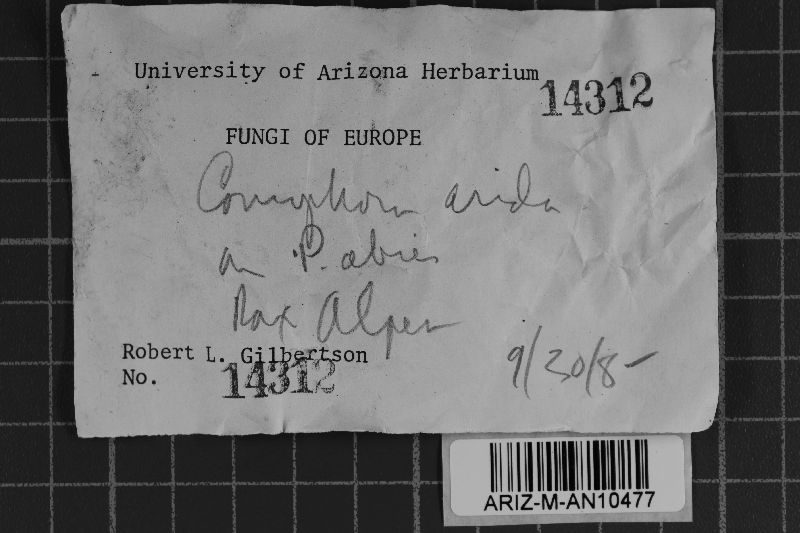 University of Arizona Herbarium
14312
FUNGI OF EUROPE
Coniophora arida
on P. abies
Rax Alpen
Robert L. Gilbertson
No. 14312
9/30/8-
ARIZ-M-AN10477